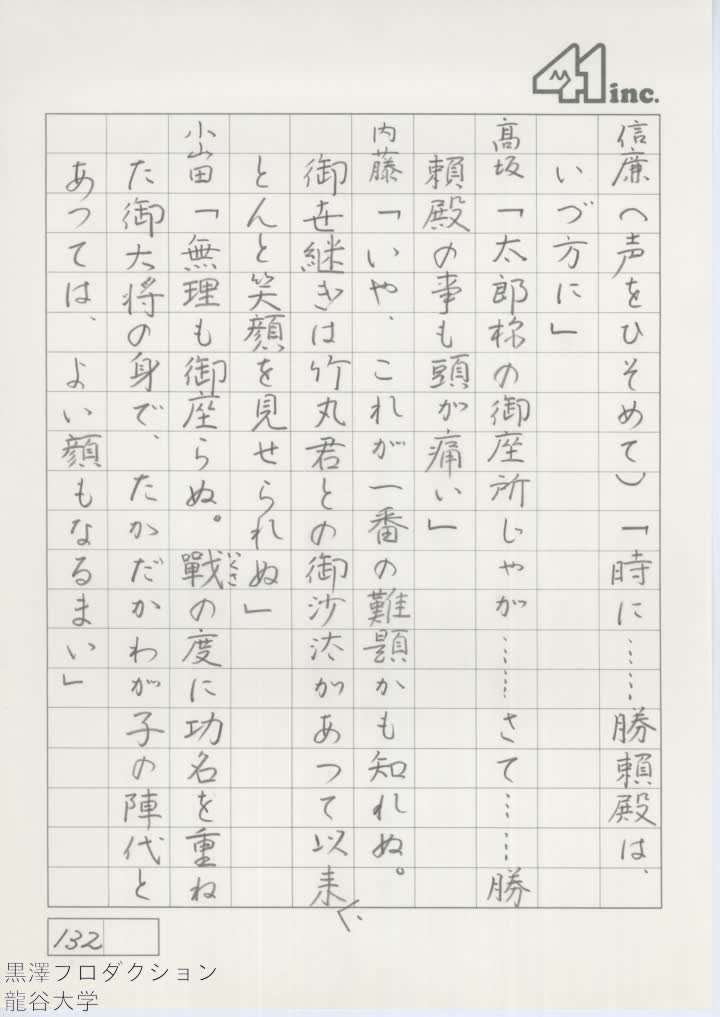 41 inc.
信廉(声をひそめて)「時に……勝頼殿は、
いづ方に」
高坂「太郎様の御座所じゃが……さて……勝
頼殿の事も頭が痛い」
内藤「いや、これが一番の難題かも知れぬ。
御世継ぎは竹丸君との御沙汰があつて以来、
とんと笑顔を見せられぬ」
小山田「無理も御座らぬ。戰の度に功名を重ね
いくさ
た御大将の身で、たかだかわが子の陣代と
あつては、よい顔もなるまい」
132
黒澤プロダクション
龍谷大学